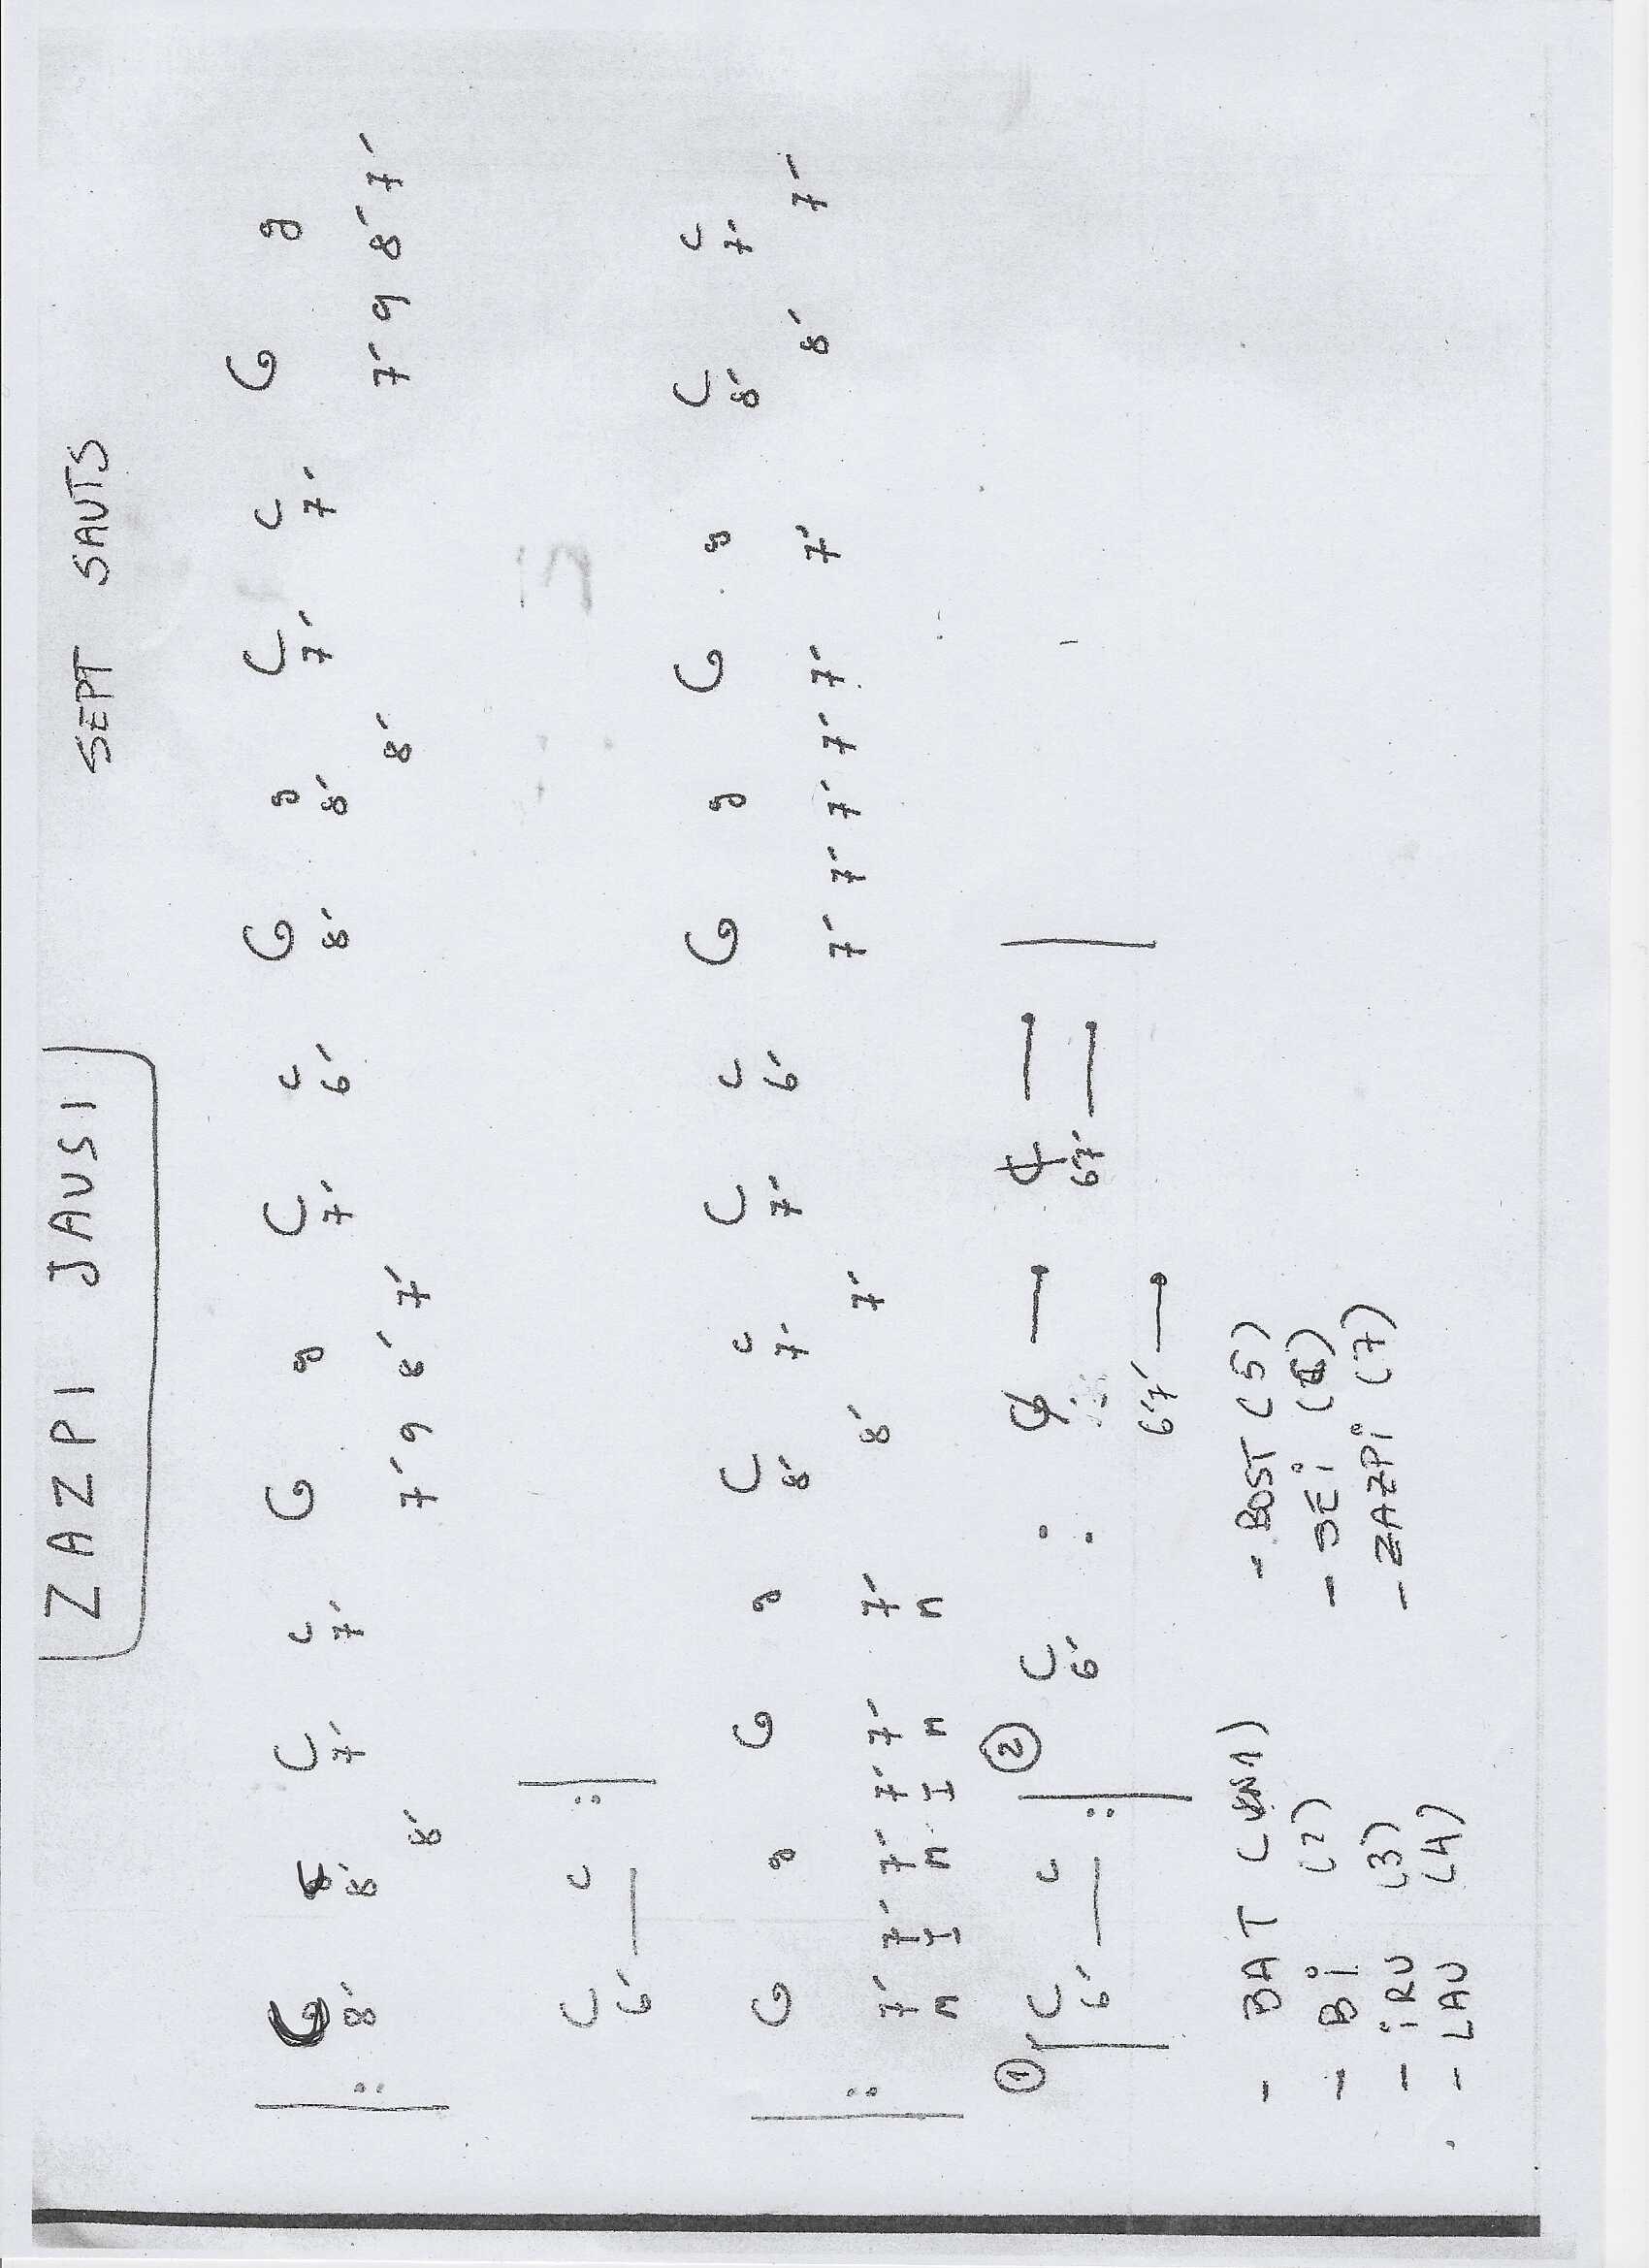 ZAZPI JAUSI SEPT SAUTS
G g C c G g C c G g C c G g
8' 8' 7' 7' 7' 6' 8' 8' 7' 7'
8' 7' 9 8' 7' 8' 7' 9 8' 7'
C c
6'
G g G g C c C c G g G g C c
8' 7' 7' 6' 8' 7'
7' 7' 7' 7' 7' 7' 8' 7' 7' 7' 7' 7' 7' 7' 8' 7'
n I n I n n
1 C c 2 C G C
6' 6' 6'7'
6'7'
- BAT (UN1) - BOST (5)
- Bi (2) - SEi (6)
- iRU (3) - ZAZPi (7)
- LAU (4)